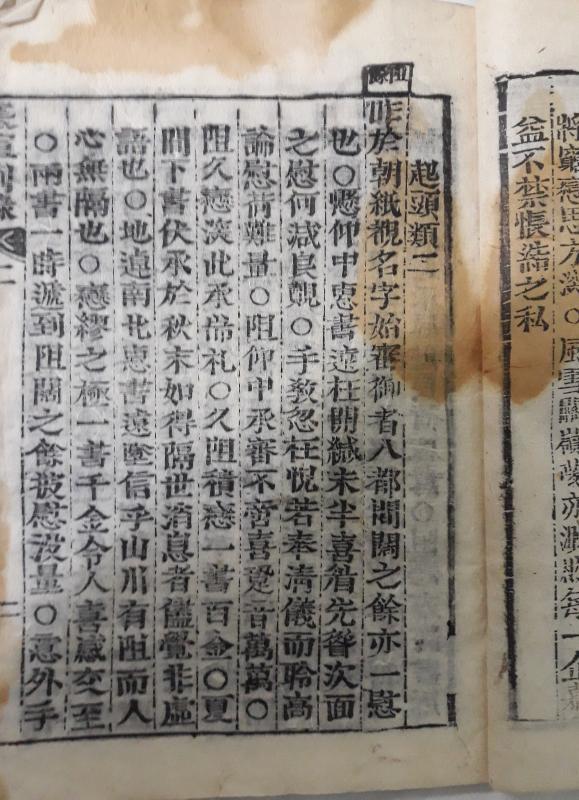 益不禁悵㵢之私
阻餘
起頭類二
昨於朝紙覩名字始審御者入都間闊之餘亦一慰
也○懸仰中惠書遠枉開緘未半喜眉先聳次面
之慰何減良覿○手敎忽枉怳若奉淸儀而聆高
論慰荷難量○阻仰中承審不啻喜跫音萬萬○
阻久戀深此承常札○久阻積戀一書百金○夏
間下書伏承於秋末如得隔世消息者儘覺非虛
語也○地遠南北惠書遠墜信乎山川有阻而人
心無隔也○戀繆之極一書千金令人喜感交至
○兩書一時遞到阻闊之餘披慰沒量○意外手
二